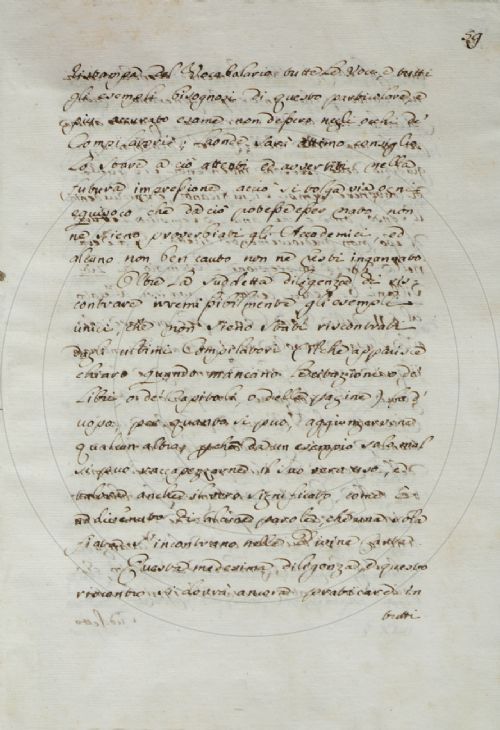 59
ristampa del Vocabolario tutte le Voci, e tutti
gli esempli bisognosi di questo particolare, e
più accurato esame non dessero negli occhi de
Compilatori; honde sarà ottimo consiglio
lo stare a ciò attenti ed avvertiti nella
futura impressione acciò si tolga via ogni
equivoco, che da ciò potesse esser nato, non
ne sieno proverbiati gli Accademici, ed
alcuno non ben cauto non ne resti ingannato.
Oltre la suddetta diligenza di ris-
contrare gli esempli
unici, che non sieno stati riscontrati
dagli ultimi Compilatori il che apparisce
chiaro quando mancano le citazioni o de
Libri o de Capitoli, o delle pagine) fa d'
uopo, per quanto si può, aggiungervene
qualcun altro, perchè da un esempio solo mal
si può raccapezzarne il suo vero uso, e
talora anche il vero significato, come è
addivenuto di alcune parole, che una sola
fiata s' incontrano nelle Divine carte.
Questa medesima diligenza, di questo
riscontro si dovrà ancora praticare in
tutti